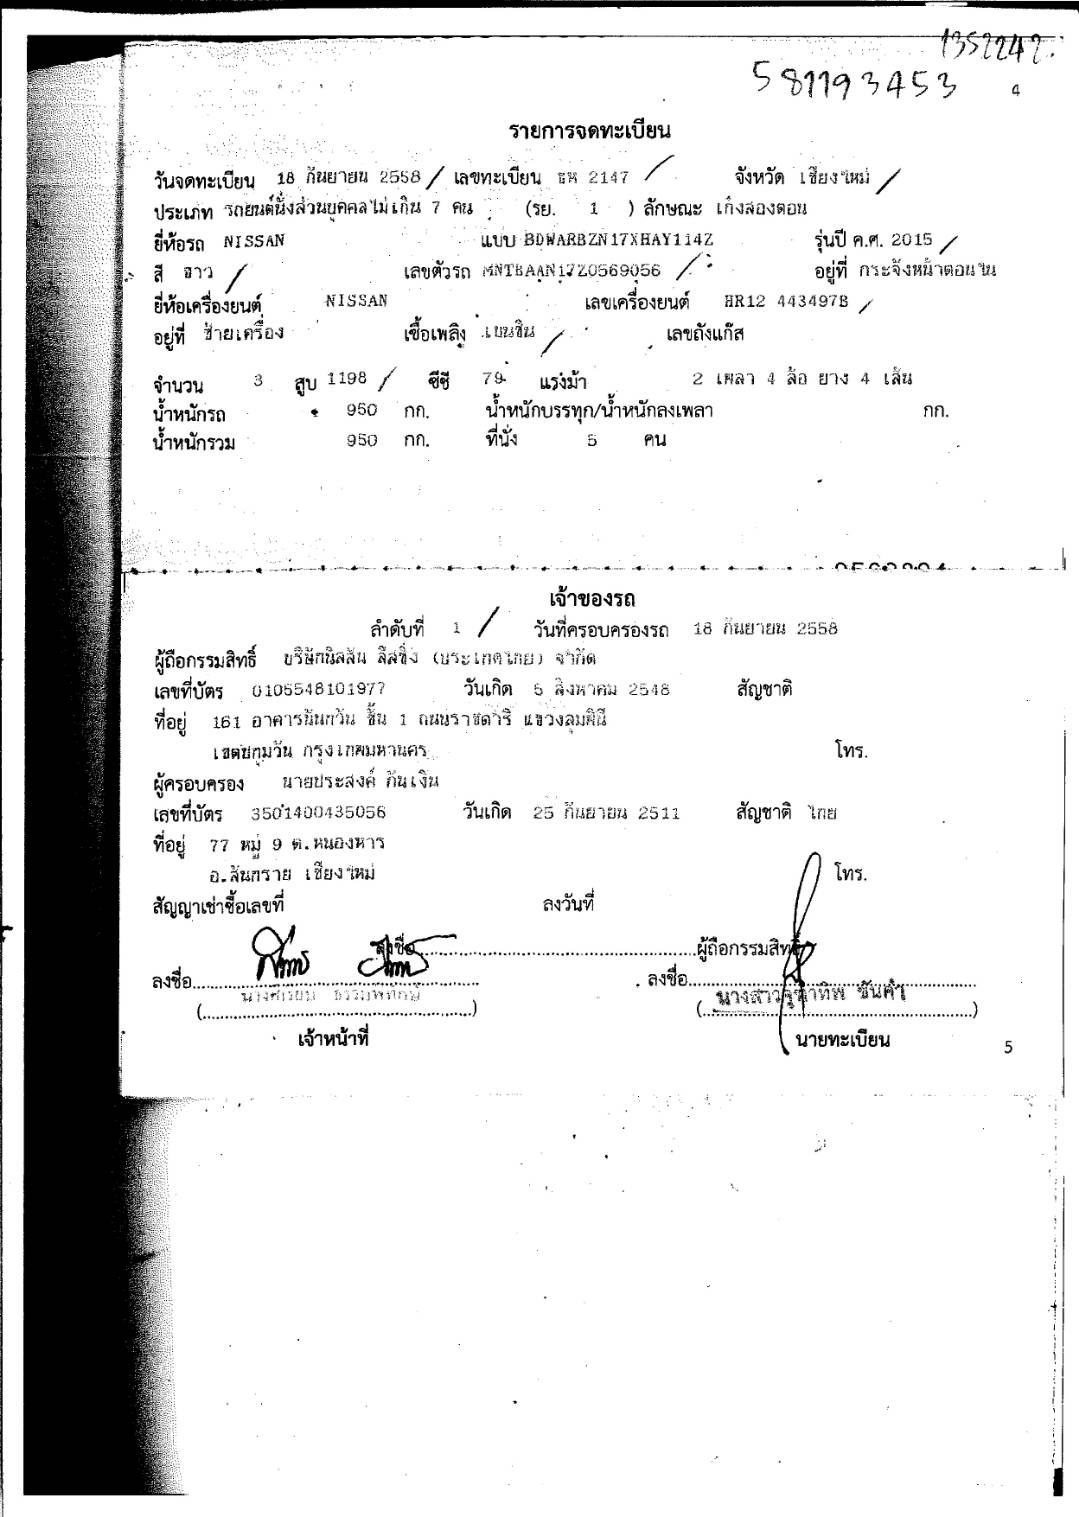 1352242
581193453
4
รายการจดทะเบียน
วันจดทะเบียน 18 กันยายน 2558 เลขทะเบียน ธห 2147 จังหวัด เชียงใหม่
ประเภท รถยนต์นั่งส่วนบุคคลไม่เกิน 7 คน (รย. 1 ) ลักษณะ เก๋งสองตอน
ยี่ห้อรถ NISSAN แบบ BDWARBZN17XHAY114Z รุ่นปี ค.ศ. 2015
สี ขาว เลขตัวรถ MNTBAAN17Z0569056 อยู่ที่ กระจังหน้าตอนใน
ยี่ห้อเครื่องยนต์ NISSAN เลขเครื่องยนต์ HR12 443497B
อยู่ที่ ซ้ายเครื่อง เชื้อเพลิง เบนซิน เลขถังแก๊ส
จำนวน 3 สูบ 1198 ซีซี 79 แรงม้า 2 เพลา 4 ล้อ ยาง 4 เส้น
น้ำหนักรถ 950 กก. น้ำหนักบรรทุก/น้ำหนักลงเพลา กก.
น้ำหนักรวม 950 กก. ที่นั่ง 5 คน
เจ้าของรถ
ลำดับที่ 1 วันที่ครอบครองรถ 18 กันยายน 2558
ผู้ถือกรรมสิทธิ์ บริษัทนิสสัน ลีสซิ่ง (ประเทศไทย) จำกัด
เลขที่บัตร 0105548101977 วันเกิด 5 สิงหาคม 2548 สัญชาติ
ที่อยู่ 161 อาคารนันทวัน ชั้น 1 ถนนราชดำริ แขวงลุมพินี
เขตปทุมวัน กรุงเทพมหานคร โทร.
ผู้ครอบครอง นายประสงค์ กันเงิน
เลขที่บัตร 3501400435056 วันเกิด 25 กันยายน 2511 สัญชาติ ไทย
ที่อยู่ 77 หมู่ 9 ต.หนองหาร
อ.สันทราย เชียงใหม่ โทร.
สัญญาเช่าซื้อเลขที่ ลงวันที่
ลงชื่อ ผู้ถือกรรมสิทธิ์
ลงชื่อ ลงชื่อ
นางสาวจุฑาทิพ ขันคำ
เจ้าหน้าที่ นายทะเบียน
5